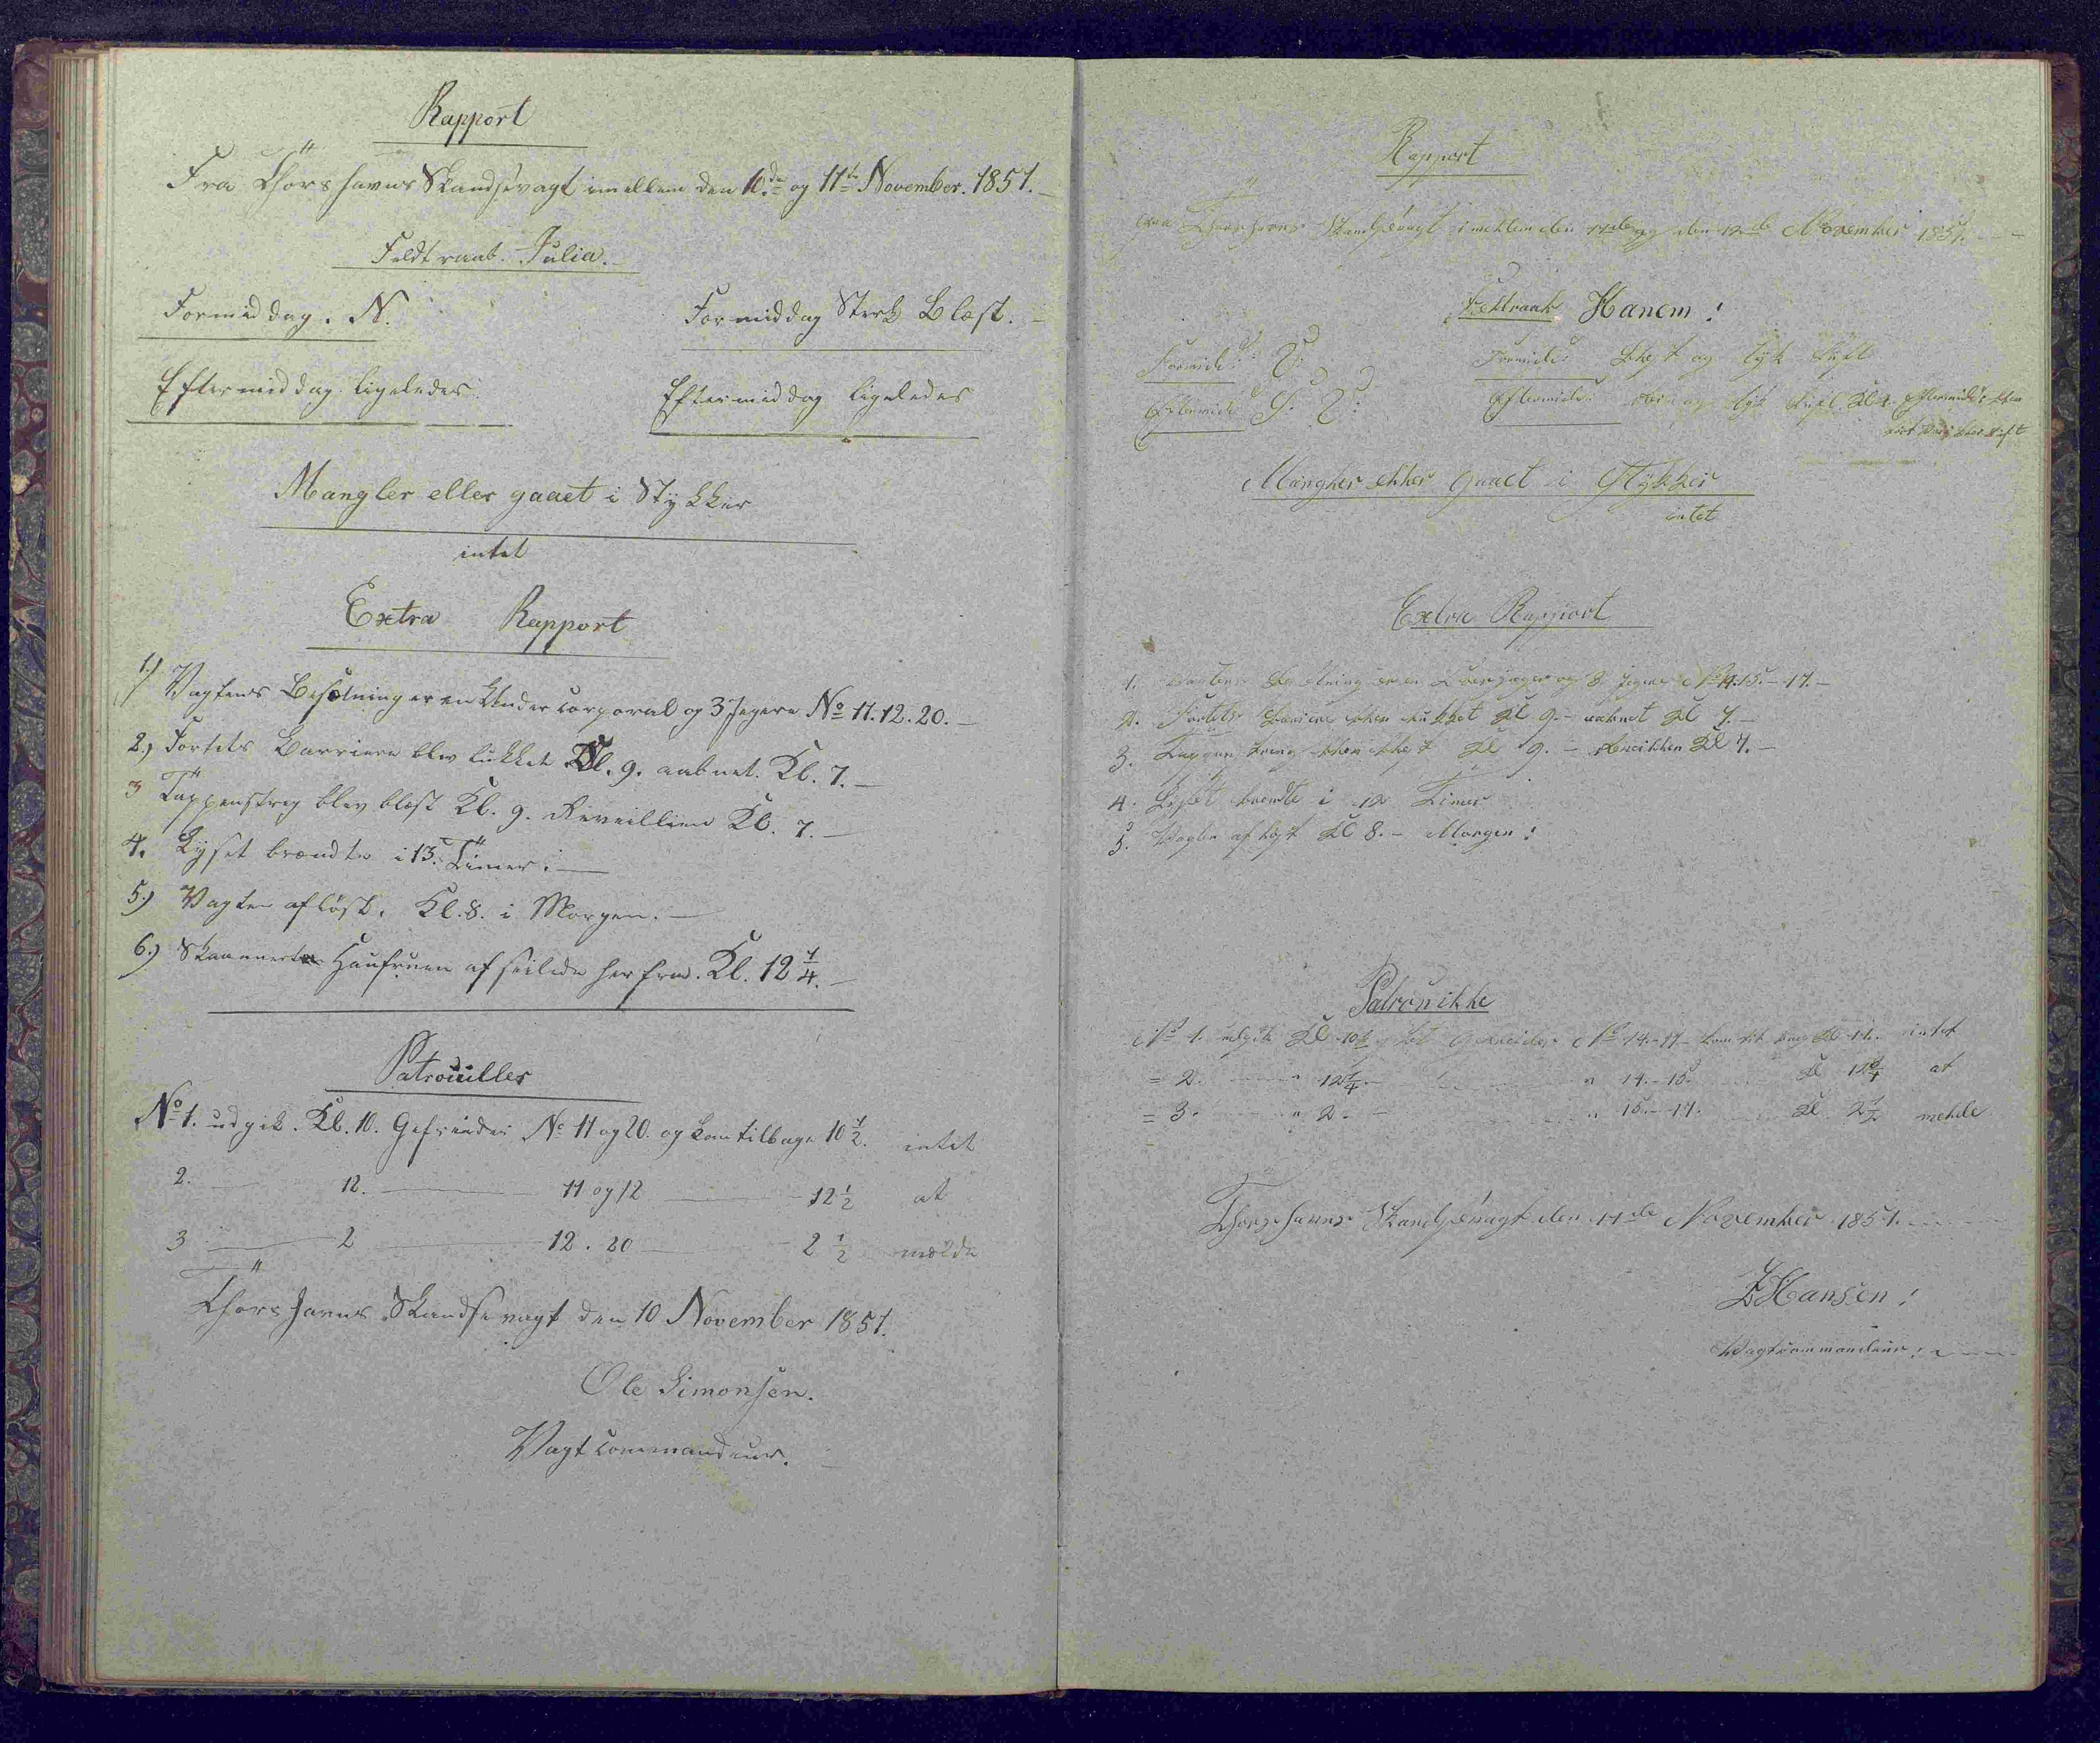 Rapport
Fra Thorshavns Skandsevagt imellem den 10de og 11te November. 1851.
Feldtraab. Julia.
Formiddag. N.
Formiddag Sterk Blæst.
Eftermiddag ligeledes.
Eftermiddag ligeledes
Mangler eller gaaet i Stykker
intet
Extra Rapport
1.) Vagtens Besætning er en Under corporal og 3 Jegere No 11. 12. 20.
2.) Fortets Barriere blev lukket Kl. 9. aabnet. Kl. 7.
3 Tappenstreg blev blæst Kl. 9. Reveillien Kl. 7.
4. Lyset brændte i 13. Timer.
5.) Vagten afløst. Kl. 8. i Morgen.
6.) Skonnerten Haufruen afseilede herfra. Kl. 12 1/4.
Patrouiller
No 1. udgik. Kl. 10. Gefreider No 11 og 20. og kom tilbage 10 1/2. intet
2. 12. 11 og 12 12 1/2 at
3 2 12. 20 2 1/2 melde
Thorshavns Skandsevagt den 10 November 1851.
Ole Simonsen.
Vagtcommandeur.
Rapport
Fra Thorshavns Skandsevagt imellem den 11de og den 12te November 1851.
Feltraab Hanem!
Formid: V:
Formid: Blest og tyk Luft
Eftermid: S: V:
Eftermid: tyk Luft. Kl 4. Eftermid:
Mangler eller gaaet i Stykker
intet
Extra Rapport
1. Vagtens Besetning er en Overjæger og 3 Jegere No 14. 15. - 17.
2. Fortets Bariere blev lukket Kl 9. - aabnet Kl 7.
3. Tappenstreng blev blest Kl 9. - Reveillen Kl 7.
4. Lyset brendte i 12 Timer
5. Vagten afløst Kl 8. - Morgen!
Patrouille
No 1. udgik Kl 10 1/2 Gefreider No 14. - 17. kom tilbage Kl 11. intet
= 2. " 12 1/4. " 14. - 15. Kl 12 3/4 at
= 3. " 2. " 15. - 17. Kl 2 1/2 melde
Thorshavns Skandsevagt den 11de November 1851.
Z Hansen!
Vagtcommandeur!